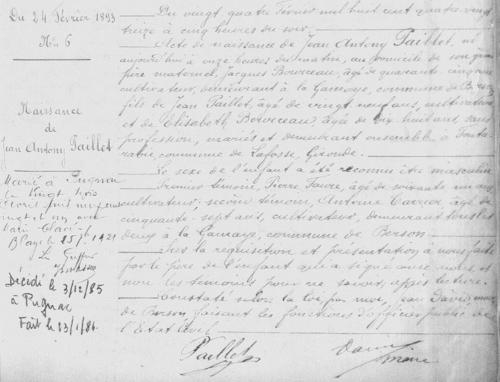 Du 24 Février 1893
N° 6
Naissance
de
Jean Antony Paillet
Marié à Pugnac
le vingt trois
avril mil neuf cent
vingt et un avec
Blaye le 15 1921
Le Greffier
Décédé le 3/12/85
à Pugnac
Fait le 13/1/86.
Du vingt quatre Février mil huit cent quatre vingt
treize à cinq heures du soir.
Acte de naissance de Jean Antony Paillet, né
aujourd'hui à onze heures du matin, au domicile de son grand
père maternel, Jacques Boureau, âgé de quarante cinq ans
cultivateur, demeurant à la commune de Berson
fils de Jean Paillet, âgé de vingt neuf ans, cultivateur
et de Elisabeth âgée de dix huit ans, sans
profession, mariés et demeurant ensemble à
commune de Lafosse, Gironde.
Le sexe de l'enfant a été reconnu être masculin
Premier témoin, Pierre Favre, âgé de soixante un ans
cultivateur; second témoin, Antoine âgé de
cinquante sept ans, cultivateur, demeurant tous les
deux à la commune de Berson.
Sur la réquisition et présentation à nous faite
par le père de l'enfant qui a signé avec nous et
non les témoins pour ne savoir, après lecture.
Constaté selon la loi par moi, Jean David, maire
de Berson faisant les fonctions d'officier public de
l'Etat civil.
Paillet
David maire